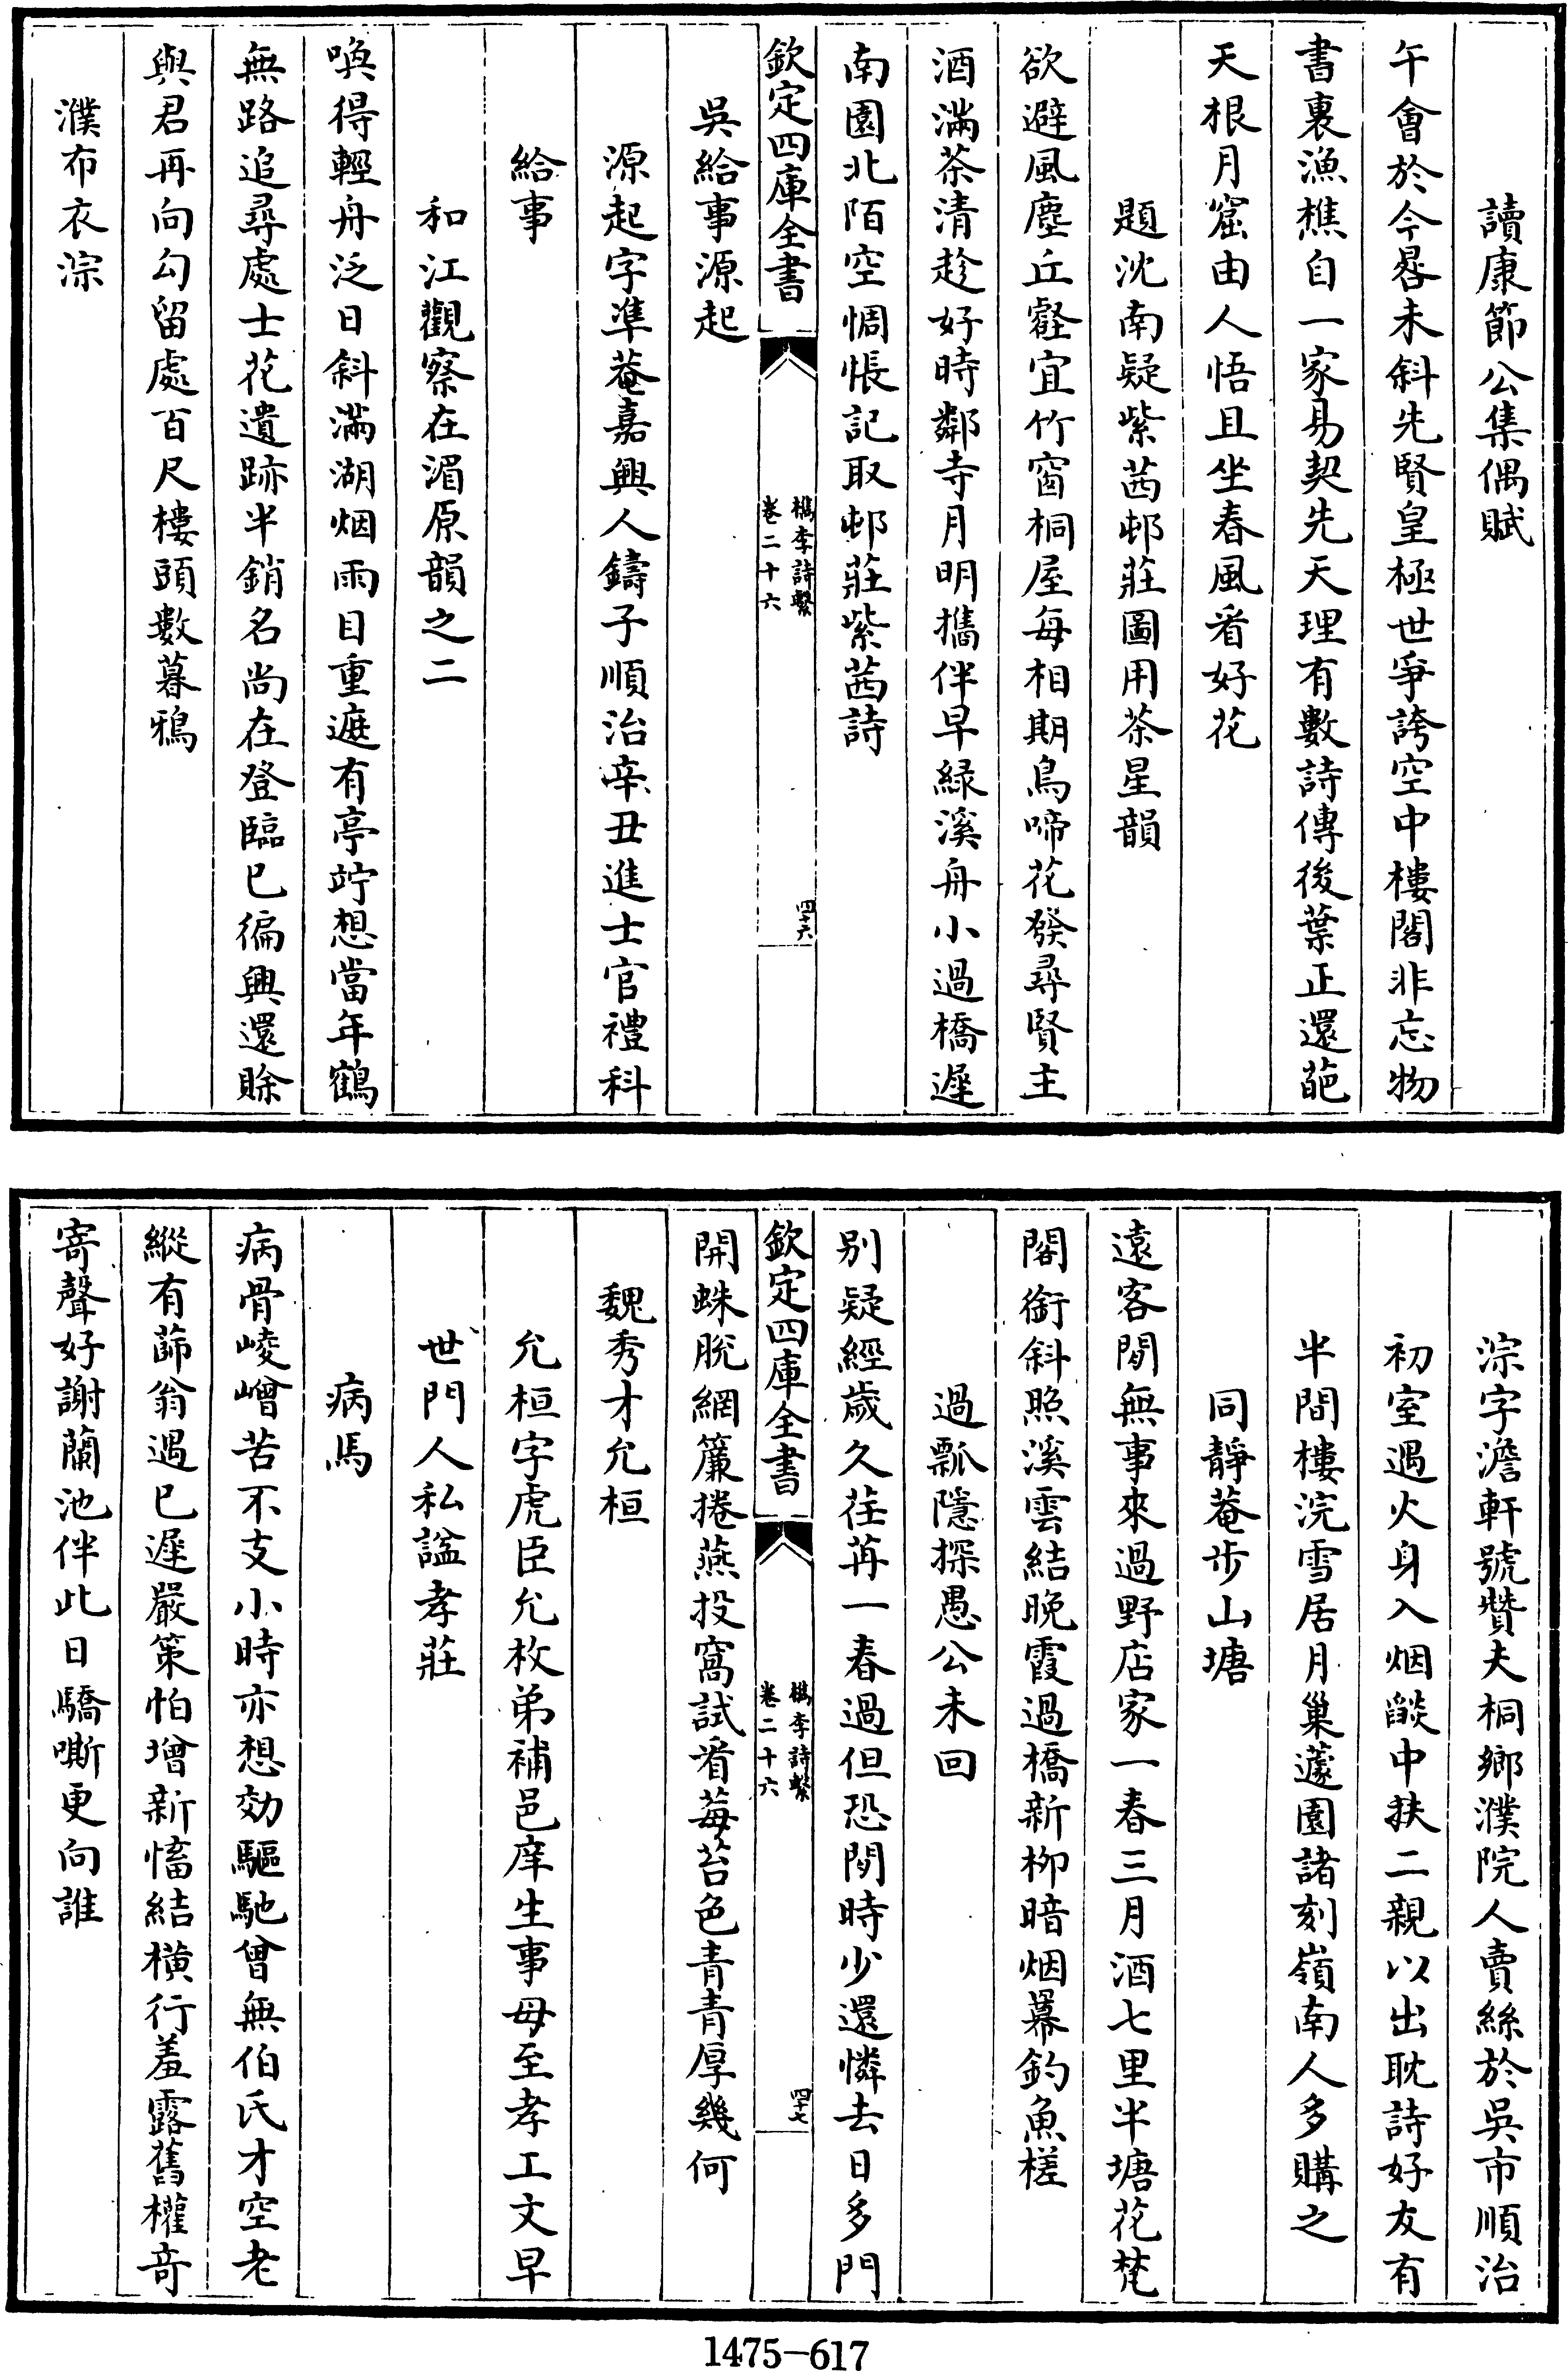 讀康節公集偶賦
午會於今晷未斜先賢皇極世爭誇空中樓閣非忘物
書裏漁樵自一家易契先天理有數詩傳後葉正還葩
天根月窟由人悟且坐春風看好花
題沈南疑紫茜邨莊圖用茶星韻
欲避風塵丘壑宜竹窗桐屋每相期鳥啼花發尋賢主
酒滿茶清趁好時鄰寺月明攜伴早緑溪舟小過橋遲
南園北陌空惆悵記取邨莊紫茜詩
欽定四庫全書
檇李詩繫
卷二十六
四十六
吳給事源起
源起字準菴嘉興人鑄子順治辛丑進士官禮科
給事
和江觀察在湄原韻之二
喚得輕舟泛日斜滿湖烟雨目重遮有亭竚想當年鶴
無路追尋處士花遺跡半銷名尚在登臨已徧興還賒
與君再向勾留處百尺樓頭數暮鴉
濮布衣淙
淙字澹軒號贊夫桐鄉濮院人賣絲於吳市順治
初室遇火身入烟燄中扶二親以出耽詩好友有
半間樓浣雪居月巢蘧園諸刻嶺南人多購之
同靜菴步山塘
遠客閒無事來過野店家一春三月酒七里半塘花梵
閣銜斜照溪雲結晚霞過橋新柳暗烟冪釣魚槎
過瓢隱探愚公未回
別疑經歲久荏苒一春過但恐閒時少還憐去日多門
開蛛脫網簾捲燕投窩試看莓苔色青青厚幾何
欽定四庫全書
檇李詩繫
卷二十六
四十七
魏秀才允桓
允桓字虎臣允枚弟補邑庠生事母至孝工文早
世門人私諡孝莊
病馬
病骨崚嶒苦不支小時亦想効驅馳曾無伯氏才空老
縱有篩翁遇已遲嚴策怕增新慉結橫行羞露舊權奇
寄聲好謝蘭池伴此日驕嘶更向誰
1475-617